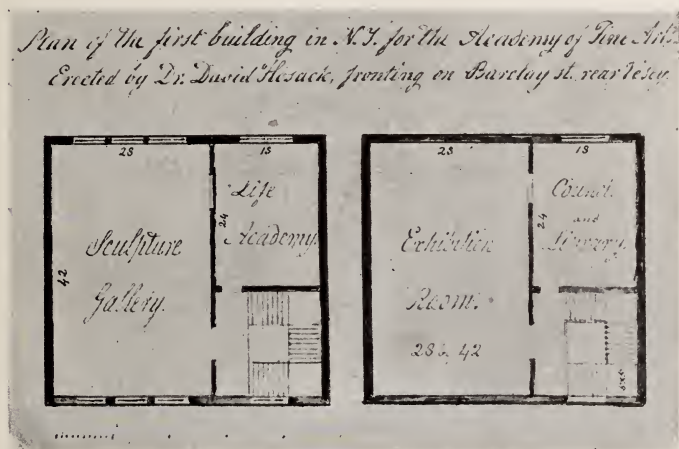 Plan of the first building in N.Y. for the Academy of Fine Arts
Erected by Dr. David Hosack, fronting on Barclay st. rear Vesey.
28
18
Life
Academy.
24
Sculpture
Gallery.
42
28
18
Council
and
Library.
24
Exhibition
Room.
28 42